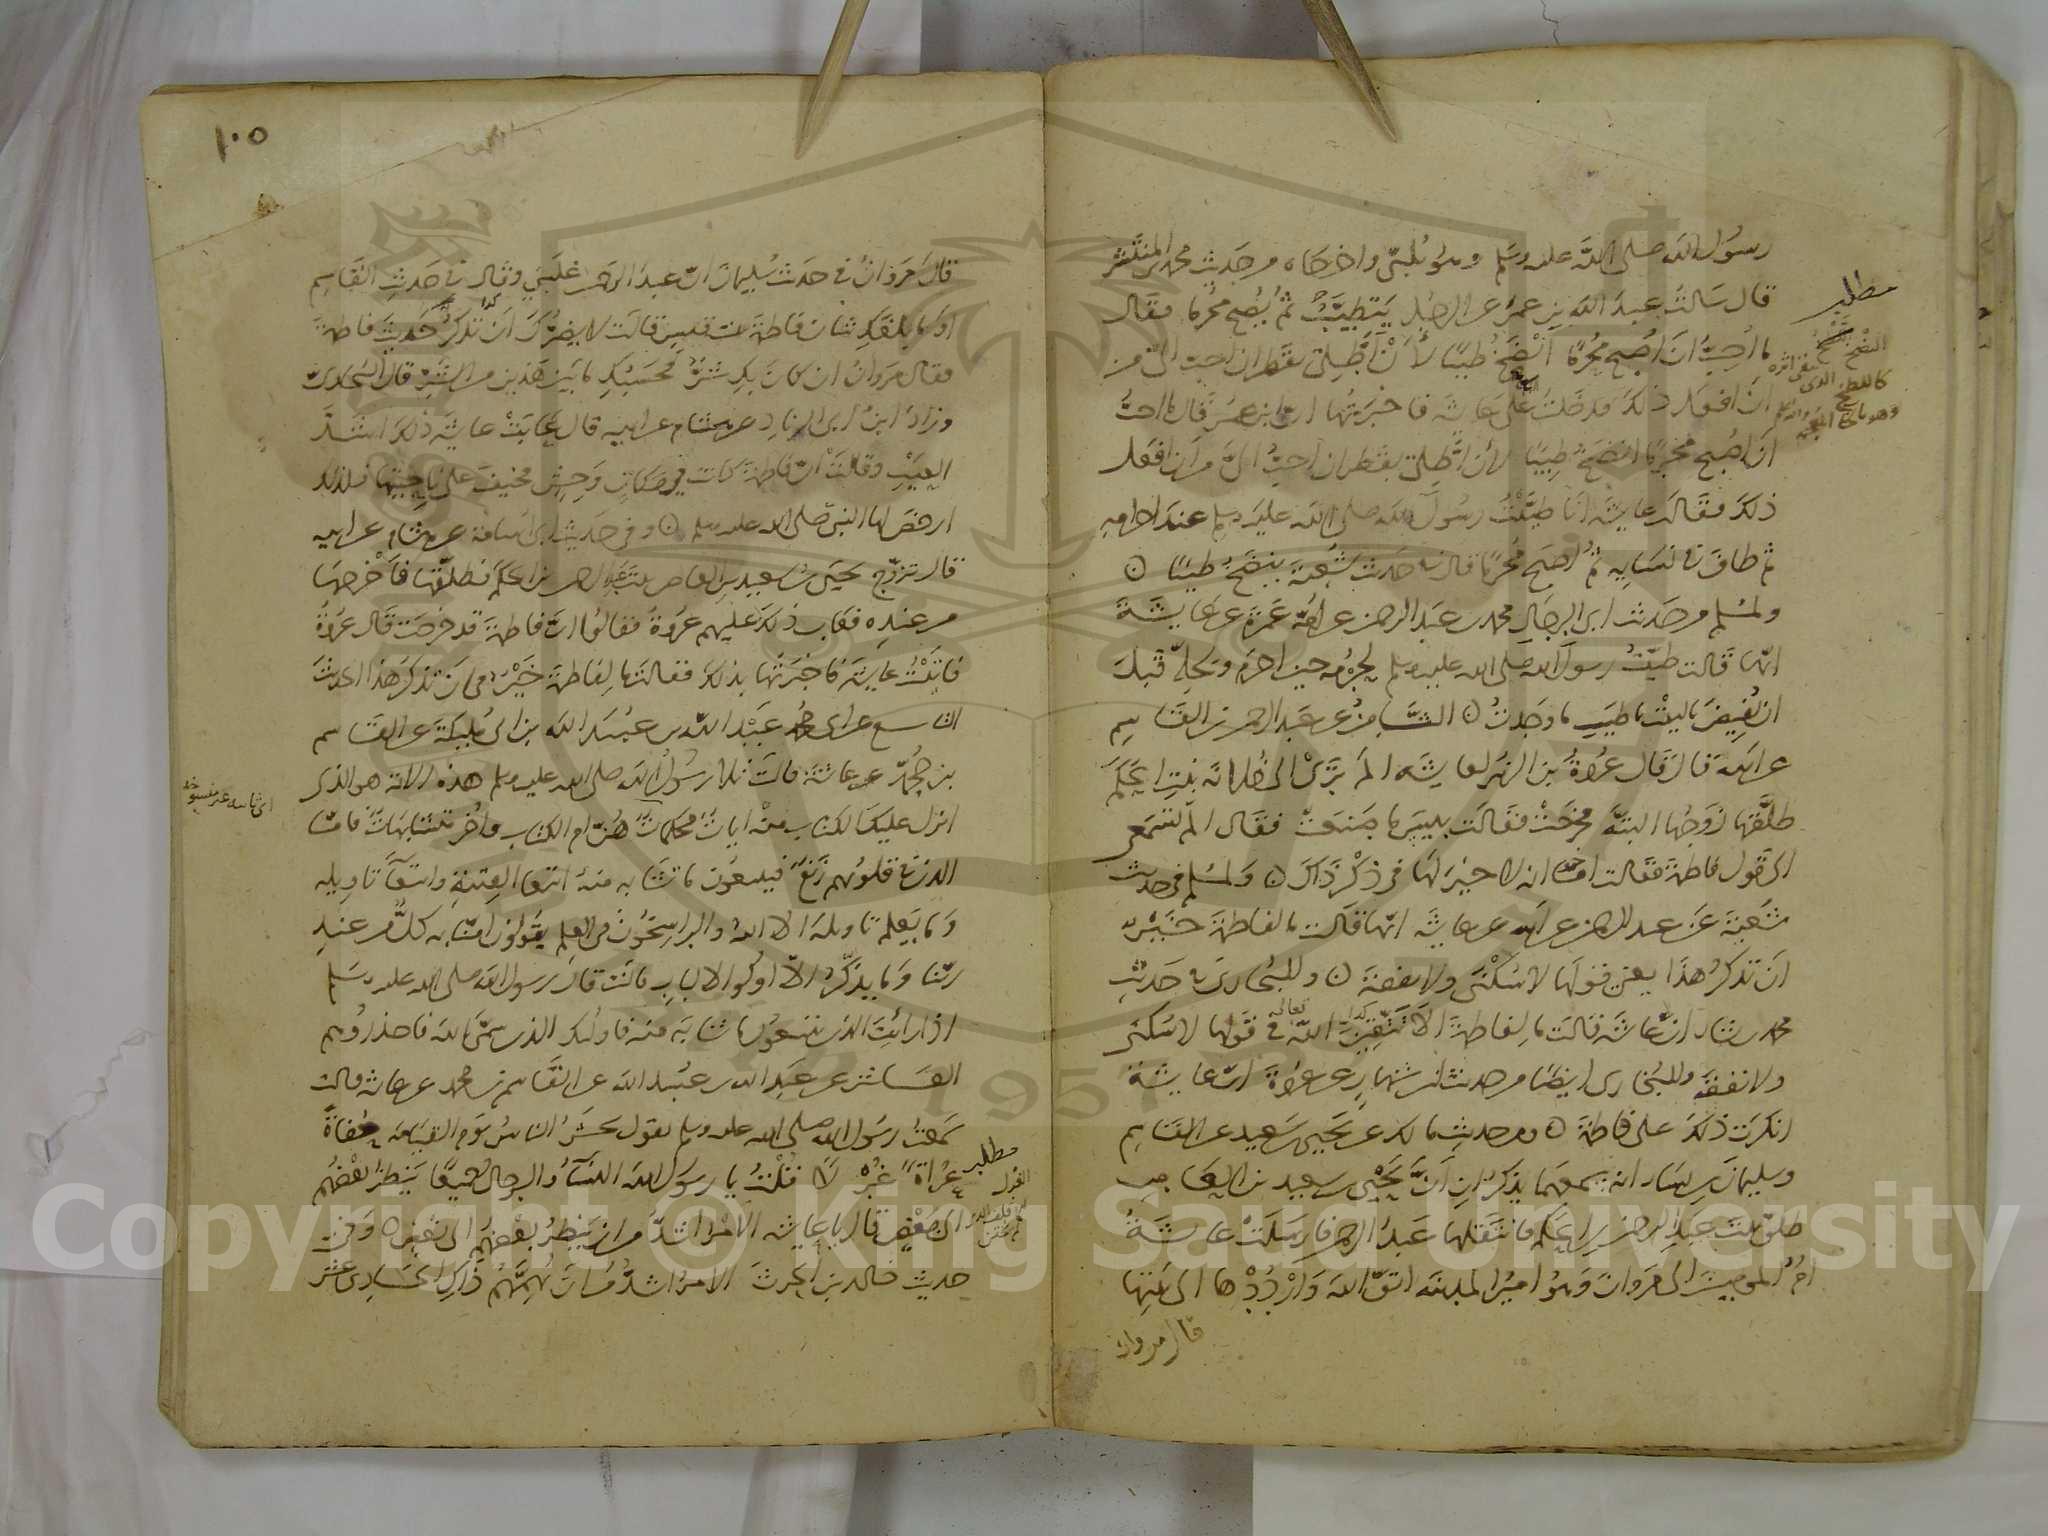 رسول الله صلى الله عليه وسلم وهو يلبي واخرجاه من حديث محمد بن المنتشر
قال سالت عبد الله بن عمر عن الرجل يتطيب ثم يصبح محرما فقال
ما احب ان اصبح محرما انضخ طيبا لأن اطلى بقطران احب الي من
ان افعل ذلك فدخلت على عايشة فاخبرتها ان ابن عمر قال ما احب
ان اصبح محرما انضخ طيبا لأن اطلى بقطران احب الي من ان افعل
ذلك فقالت عايشة انا طيبت رسول الله صلى الله عليه وسلم عند احرامه
ثم طاف في نسايه ثم اصبح محرما قال في حديث شعبة ينضخ طيبا ه
ولمسلم من حديث ابي الرجال محمد بن عبد الرحمن عن امه عمرة عن عايشة
انها قالت طيبت رسول الله صلى الله عليه وسلم لحرمه حين احرم ولحله قبل
ان يفيض بالبيت باطيب ما وجدت ه الثامن عن عبد الرحمن بن القاسم
عن ابيه قال قال عروة بن الزبير لعايشة الم تري الى فلانة بنت الحكم
طلقها زوجها البتة فخرجت فقالت بييس ما صنعت فقال الم تسمعي
الى قول فاطمة فقالت اما انه لا خير لها في ذكر ذاك ه ولمسلم في حديث
شعبة عن عبد الرحمن عن ابيه عن عايشة انها قالت ما لفاطمة خير
ان تذكر هذا يعني قولها لا سكنى ولا نفقة ه وللبخاري في حديث
محمد بن بشار ان عايشة قالت ما لفاطمة الا تتقي الله تعالى في قولها لا سكنى
ولا نفقة وللبخاري ايضا من حديث ابن شهاب عن عروة ان عايشة
انكرت ذلك على فاطمة ه ومن حديث مالك عن يحيى بن سعيد عن القاسم
وسليمان بن يسار انه سمعهما يذكران ان يحيى بن سعيد بن العاص
طلق بنت عبد الرحمن بن الحكم فانتقلها عبد الرحمن فارسلت عايشة
ام المومنين الى مروان وهو امير المدينة اتق الله وارددها الى بيتها
قال مروان
مطلب
النضخ
١٠٥
قال مروان في حديث سليمان ان عبد الرحمن غلبني وقال في حديث القاسم
او ما بلغك شان فاطمة بنت قيس قالت لا يضرك ان تذكر حديث فاطمة
فقال مروان ان كان بك شر فحسبك ما بين هذين من الشر قال البخاري
وزاد ابن ابي الزناد عن هشام عن ابيه قال عابت عايشة ذلك اشد
العيب وقالت ان فاطمة كانت في مكان وحش فخيف على ناحيتها فلذلك
ارخص لها النبي صلى الله عليه وسلم ه وفي حديث ابي اسامة عن هشام عن ابيه
قال تزوج يحيى بن سعيد بن العاص بنت عبد الرحمن بن الحكم فطلقها فاخرجها
من عنده فعاب ذلك عليهم عروة فقالوا ان فاطمة قد خرجت قال عروة
فاتيت عايشة فاخبرتها بذلك فقالت ما لفاطمة خير في ان تذكر هذا الحديث
التاسع عن عبد الله بن عبيد الله بن ابي مليكة عن القاسم
بن محمد عن عائشة قالت تلا رسول الله صلى الله عليه وسلم هذه الاية هو الذي
انزل عليك الكتاب منه ايات محكمات هن ام الكتاب واخر متشابهات فاما
الذين في قلوبهم زيغ فيتبعون ما تشابه منه ابتغا الفتنة وابتغا تاويله
وما يعلم تاويله الا الله والراسخون في العلم يقولون امنا به كل من عند
ربنا وما يذكر الا اولوا الالباب قالت قال رسول الله صلى الله عليه وسلم
اذا رايت الذين يتبعون ما تشابه منه فاولئك الذين سمى الله فاحذروهم
العاشر عن عبد الله بن عبيد الله عن القاسم بن محمد عن عايشة قالت
سمعت رسول الله صلى الله عليه وسلم يقول يحشر الناس يوم القيامة حفاة
عراة غرلا قلت يا رسول الله النساء والرجال جميعا ينظر بعضهم
الى بعض قال يا عايشة الامر اشد من ان ينظر بعضهم الى بعض ه وفي
حديث خالد بن الحرث الامر اشد من ان يهمهم ذاك الحادي عشر
مطلب
الغرل
Copyright © King Saud University
1957